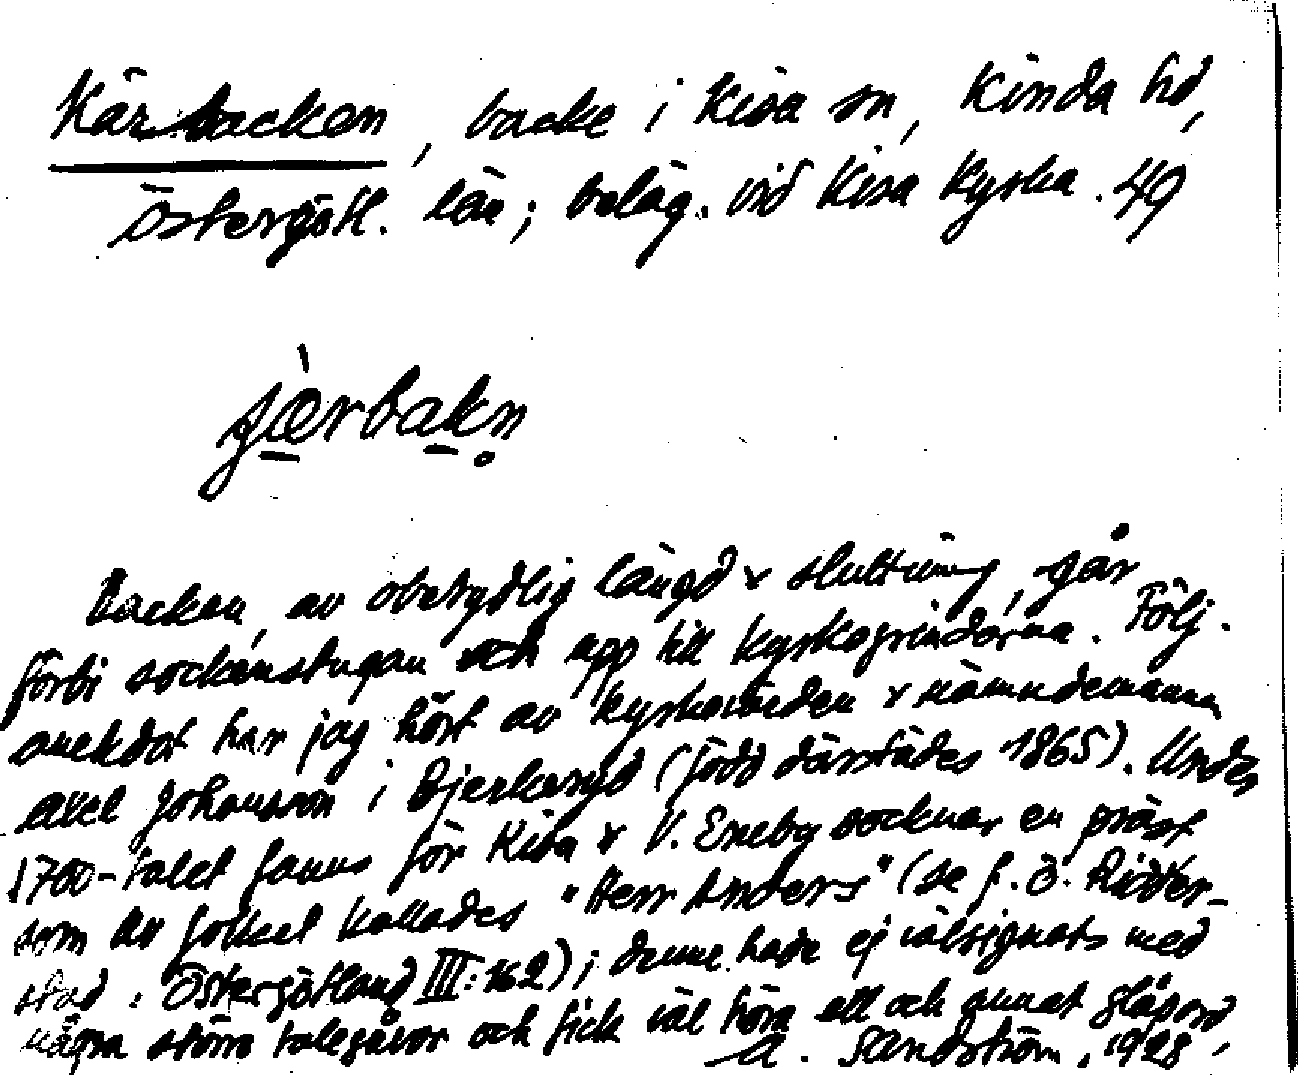 Kärbacken, backe i Kisa sn, Kinda hd,
Östergötl. län; beläg. vid Kisa kyrka. 49
jærbakn
Backen, av obetydlig längd & sluttning, går
förbi sockenstugan och upp till kyrkogrindarna. Följ.
anekdot har jag hört av kyrkovärden & nämndemannen
Axel Johansson i Bjerkeryd (född därstädes 1865). Under
1700-talet fanns för Kisa & V. Eneby socknar en präst
som av folket kallades "Herr Anders" (se f. Ö. Ridder-
stad. Östergötland III:162); denne hade ej välsignats med
några större talegåvor och fick väl höra ett och annat glåpord,
A. Sandström, 1928